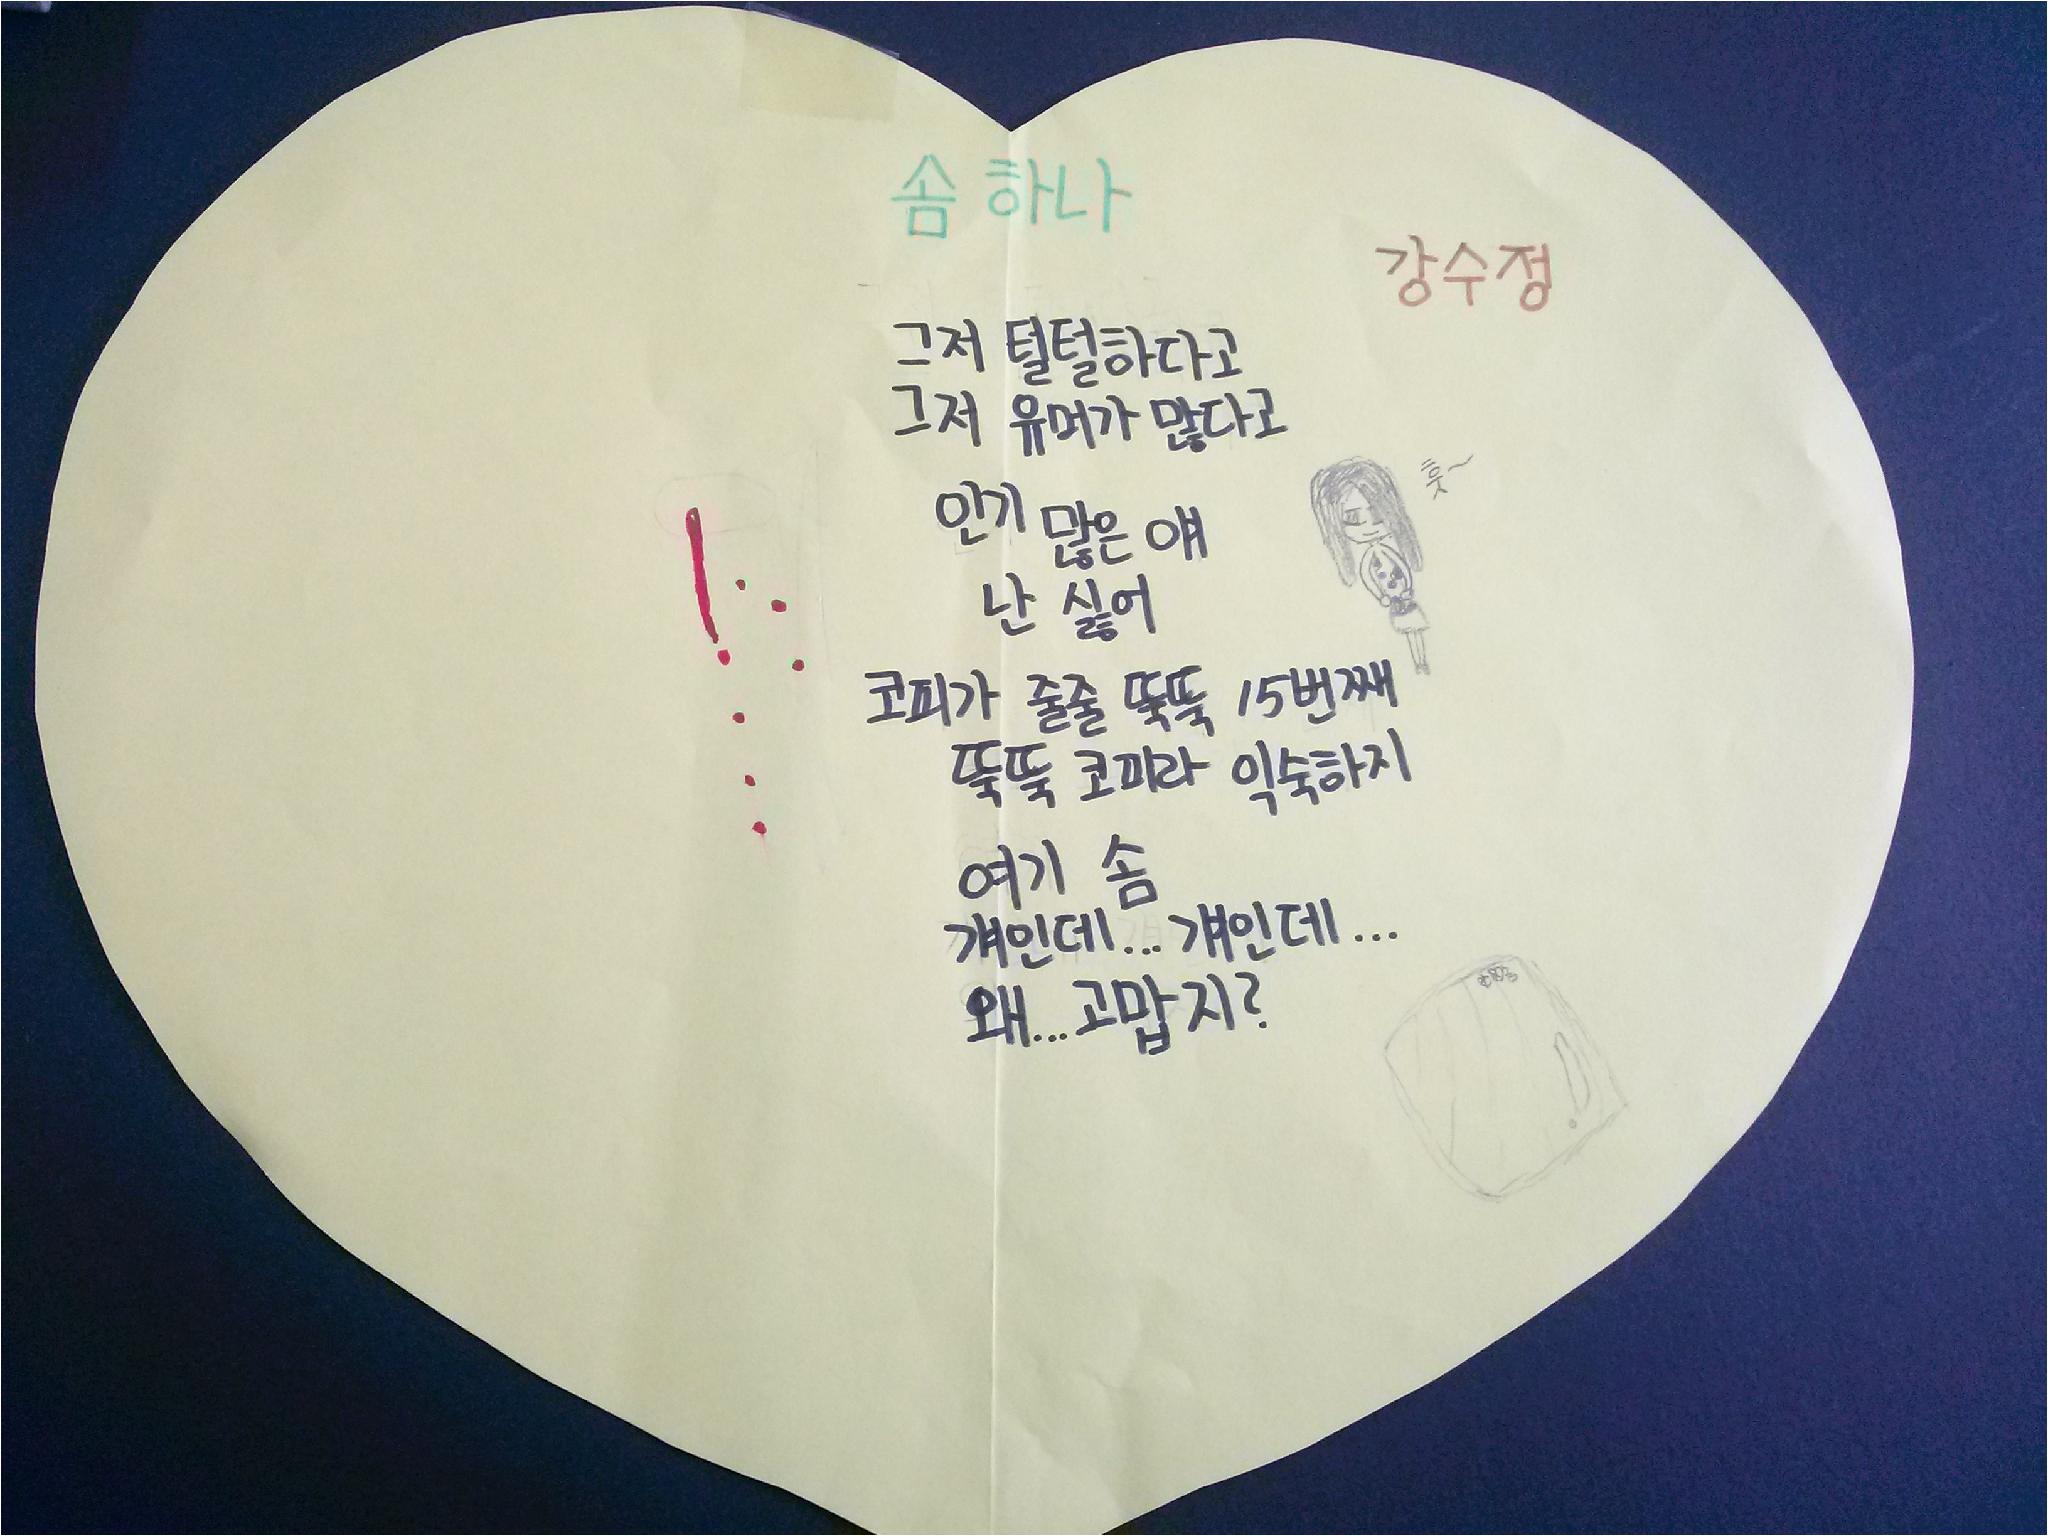 솜 하나
강수정
그저 털털하다고
그저 유머가 많다고
인기 많은 얘
난 싫어
훗~
코피가 줄줄 뚝뚝 15번째
뚝뚝 코피라 익숙하지
여기 솜
걔인데... 걔인데...
왜...고맙지?